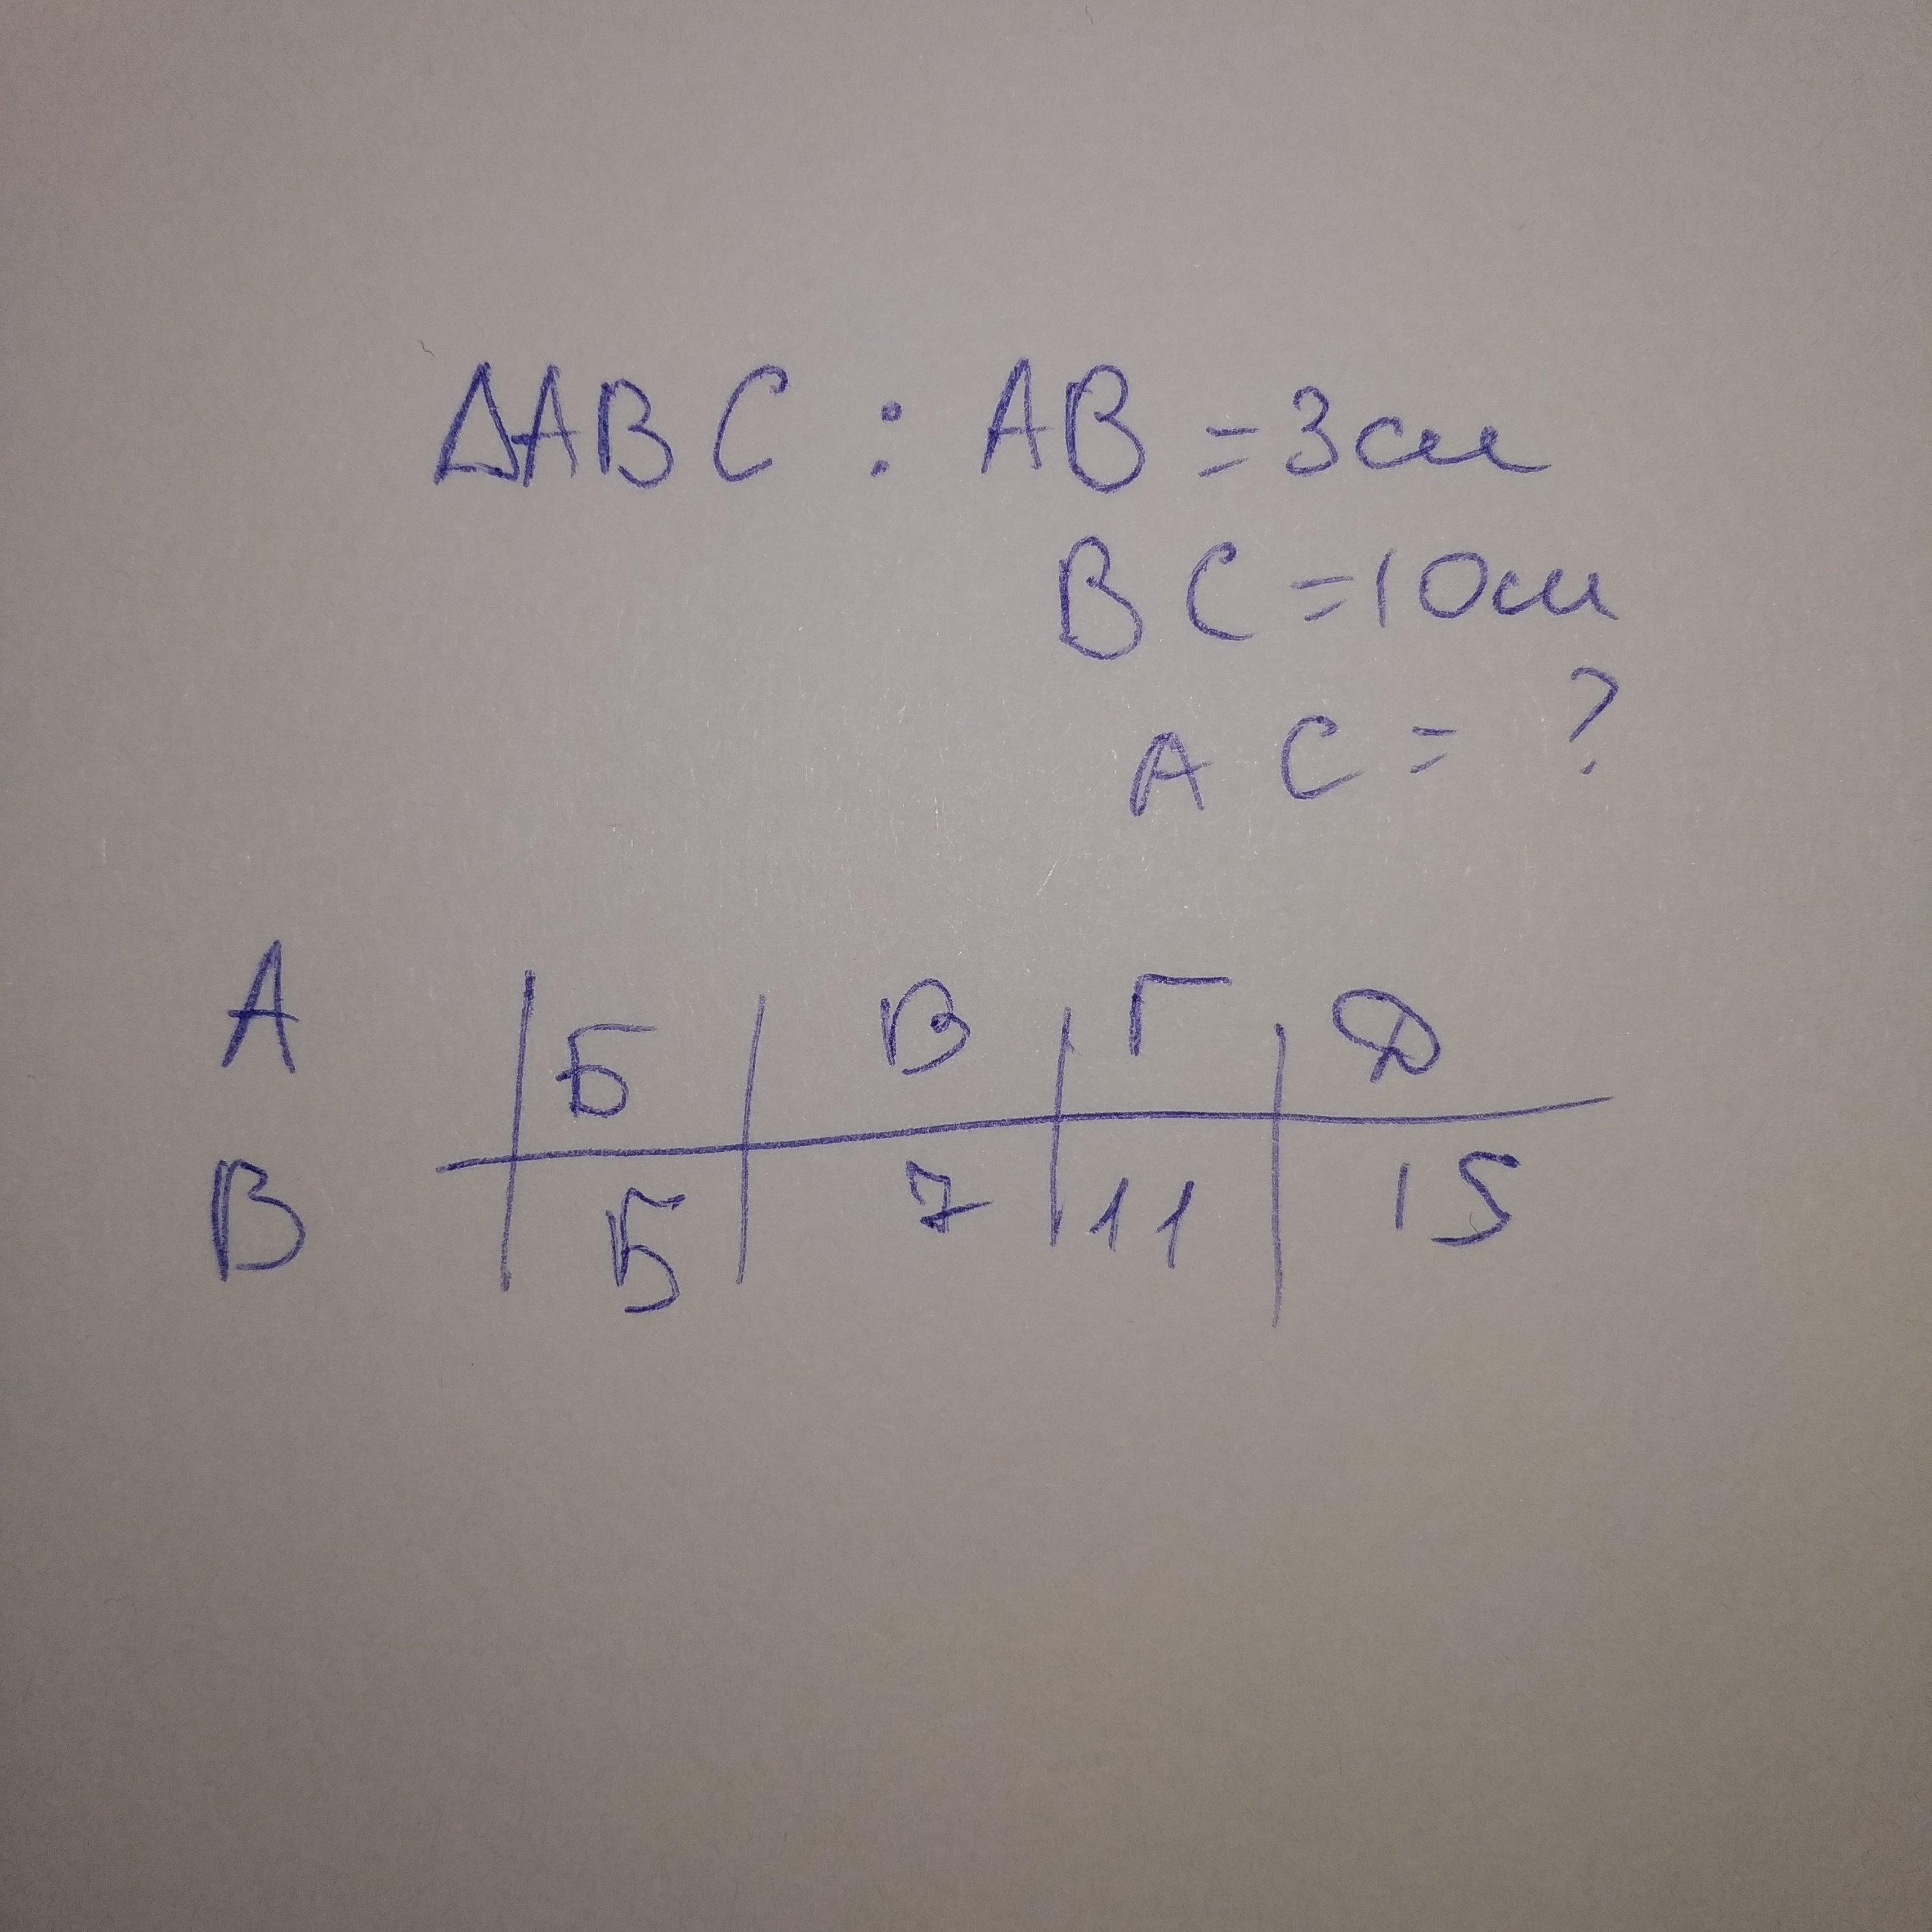 ΔABC : AB = 3см
BC = 10см
AC = ?
А | Б | В | Г | Д
В | 5 | 7 | 11 | 15